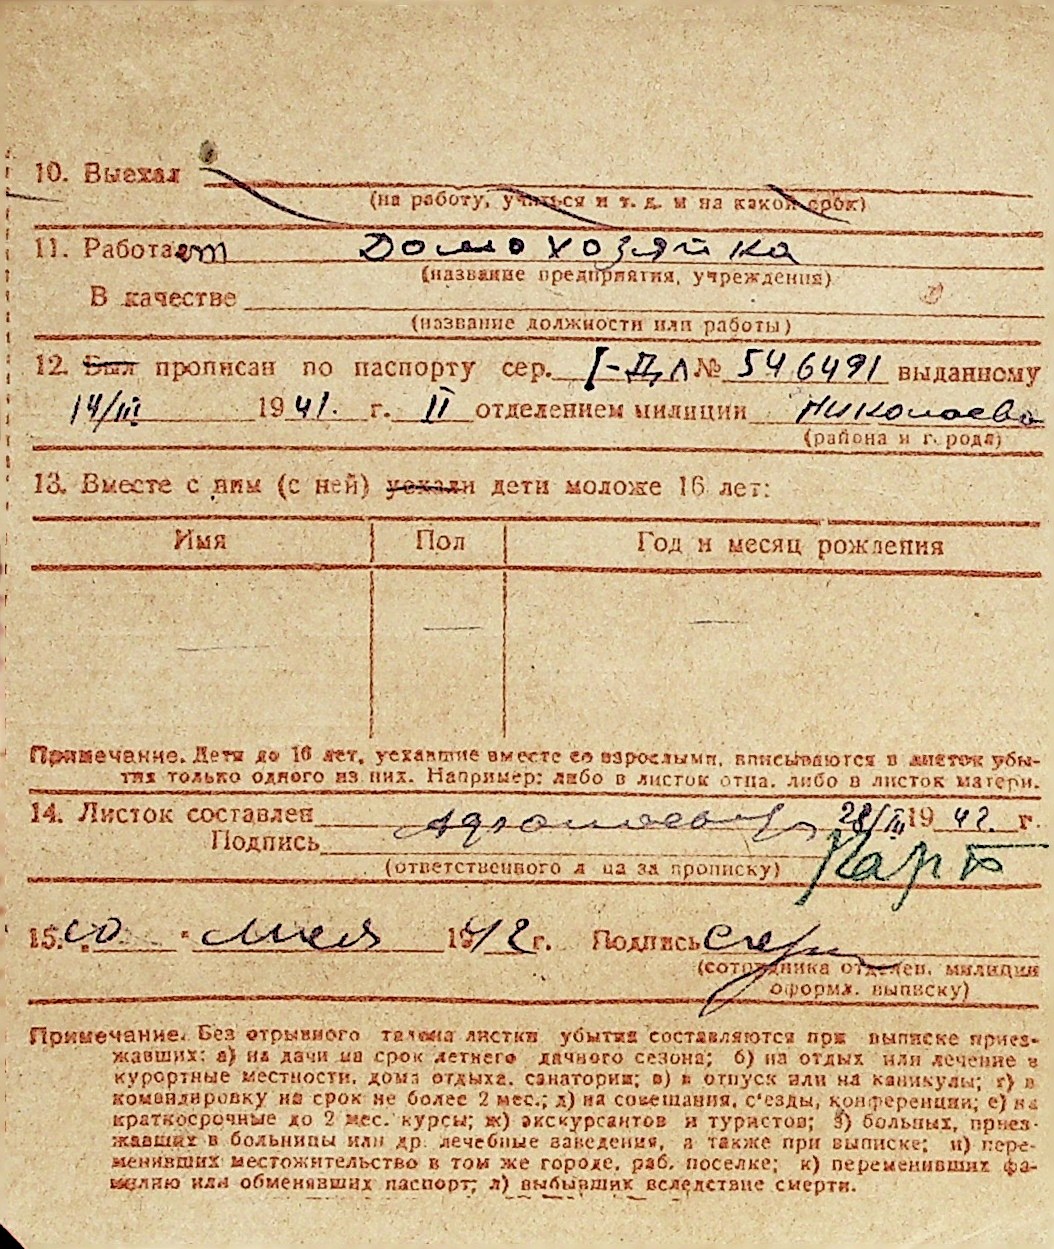 10. Выехал
(на работу, учиться и т. д. и на какой срок)
11. Работает Домохозяйка
(название предприятия, учреждения)
В качестве
(название должности или работы)
12. Был прописан по паспорту сер. I-ДЛ № 546491 выданному
14/III 1941. г. II отделением милиции Николаева
(района и города)
13. Вместе с ним (с ней) уехали дети моложе 16 лет:
Имя Пол Год и месяц рождения
— — —
Примечание. Дети до 16 лет, уехавшие вместе со взрослыми, вписываются в листок убы-
тия только одного из них. Например: либо в листок отца, либо в листок матери.
14. Листок составлен 28/III 1942. г.
Подпись
(ответственного лица за прописку)
15. 10 " мая 1942 г. Подпись
(сотрудника отделен. милиции
оформл. выписку)
Примечание. Без отрывного талона листки убытия составляются при выписке приез-
жавших: а) на дачи на срок летнего дачного сезона; б) на отдых или лечение в
курортные местности, дома отдыха, санатории; в) в отпуск или на каникулы; г) в
командировку на срок не более 2 мес.; д) на совещания, с'езды, конференции; е) на
краткосрочные до 2 мес. курсы; ж) экскурсантов и туристов; з) больных, приез-
жавших в больницы или др. лечебные заведения, а также при выписке; и) пере-
менивших местожительство в том же городе, раб. поселке; к) переменивших фа-
милию или обменявших паспорт; л) выбывших вследствие смерти.